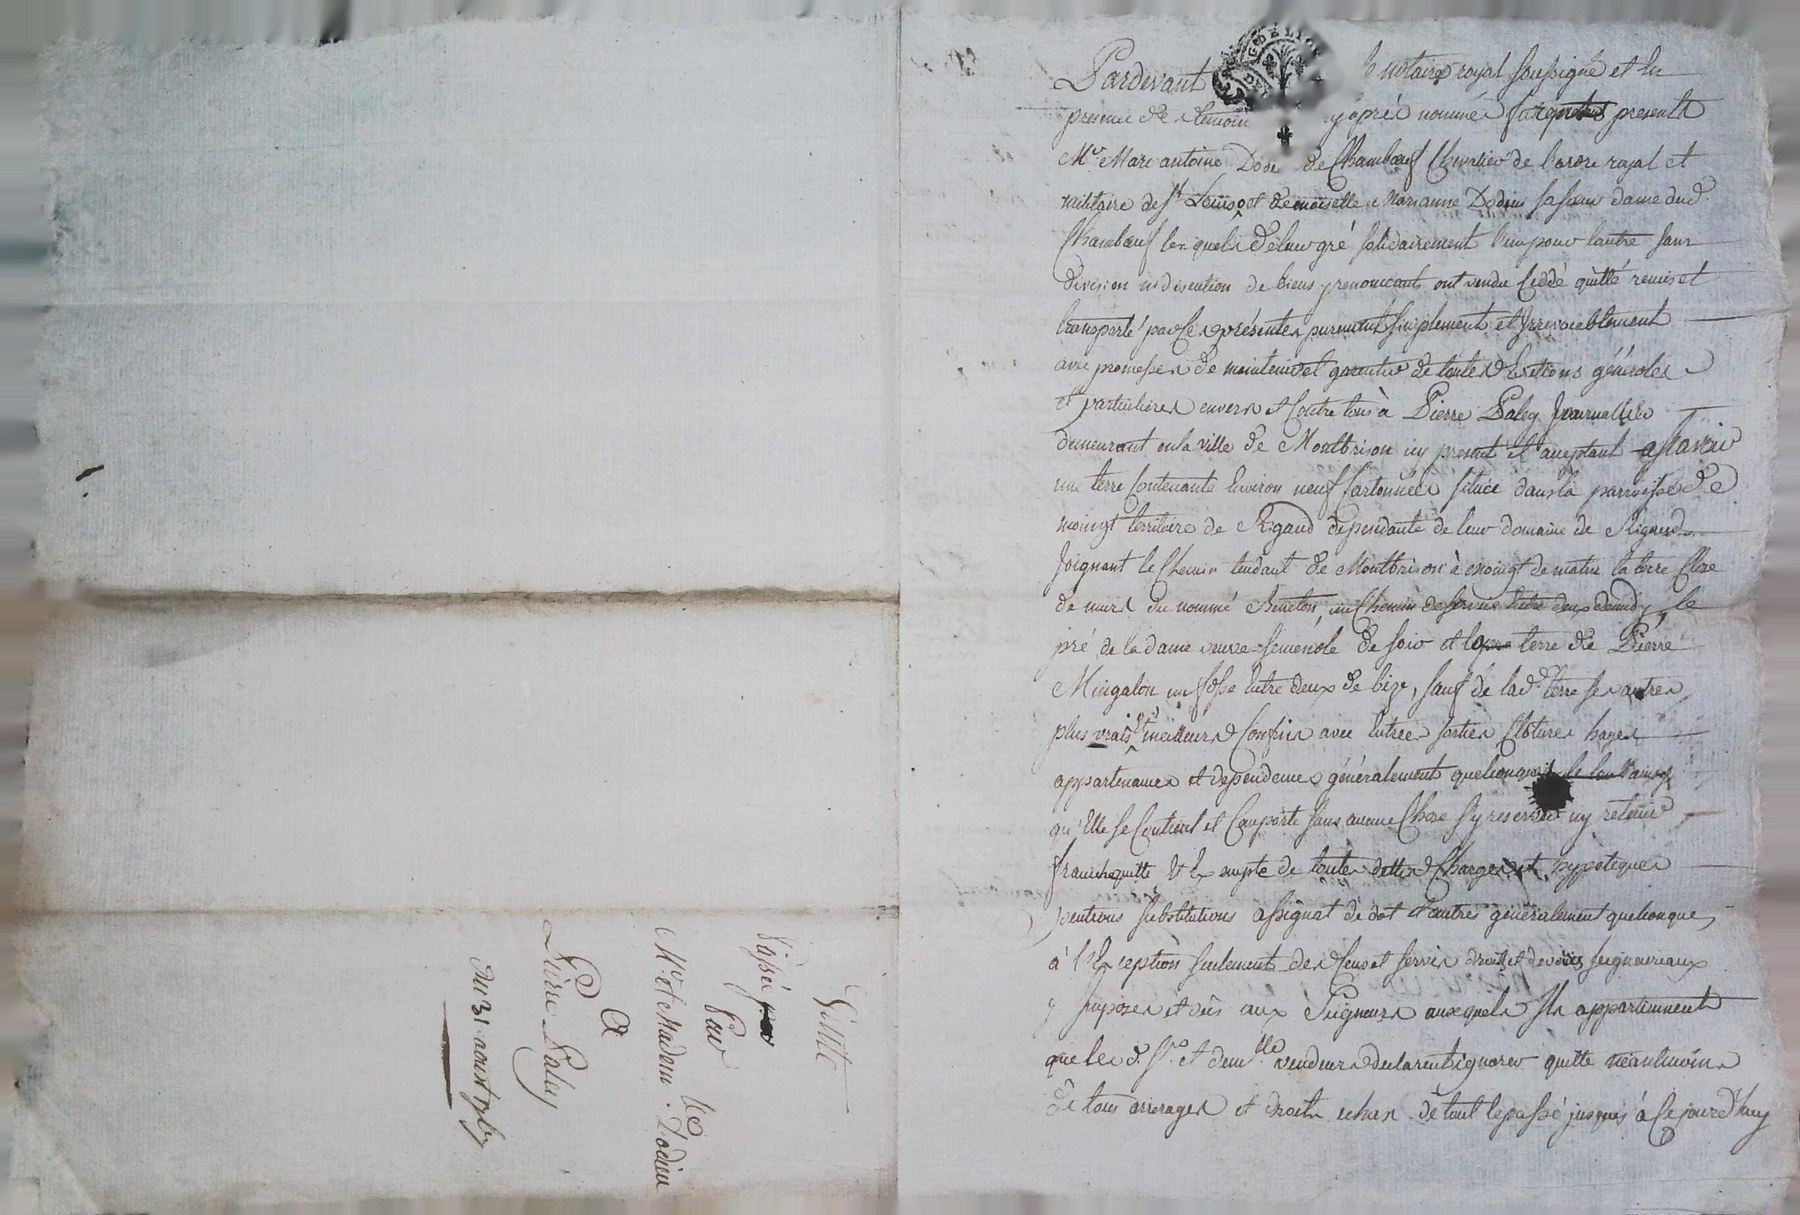 Pardevant le notaire royal soussigné et en
presence des temoins cyaprés nommés furent presents
Mr. Marc antoine Dodieu de Chambœuf Chevalier de l'ordre royal et
militaire de St. Louis et demoiselle Marianne Dodieu sa sœur dame dud.
Chambœuf lesquels de leur gré solidairement l'un pour l'autre sans
division ni discution de biens y renoncant ont vendu Cédé quitté remis et
transporté par Ces présentes purement simplement et Irrevocablement
avec promesses de maintenir et garentir de toutes Evictions générales
et particulieres envers et Contre tous à Pierre Paley Journallier
demeurant en la ville de Montbrison icy present et aceptant assavoir
une terre Contenante Environ neuf Cartonnées située dans la parroisse de
moingt territoire de Rigaud dependante de leur domaine de Rigaud
Joignant le Chemin tendant de Montbrison à moingt de matin la terre Close
de murs du nommé un Chemin de service Entre deux de midy, le
pré de la dame veuve de soir et terre de Pierre
Mingalon un fosse Entre deux de bize, sauf de lad. terre ses autres
plus vrais et meilleurs Confins avec Entrées sorties Clotures hayes
appartenances et dependences généralement quelconques le tout ainsy
qu'Elle se Contient et Comporte sans aucune Chose s'y reserver ny retenir
franche quitte Et Exempte de toutes dettes Charges et hypoteques
pentions substitutions assignat de dot et autres généralement quelconques,
à l'Exeption seulement des Cens et servis droits et devoirs seigneuriaux
y Imposés et dûs aux Seigneurs auxquels Ils appartiennent
que les d. Sr. et demlle. vendeurs declarent ignorer quitte néantmoins
de tous arrerages et droits echus de tout le passé jusques à Ce jourd'huy
Vente
passée
Par
Mr. et Madem.lle Dodieu
A
Pierre Paley
Du 31 aoust